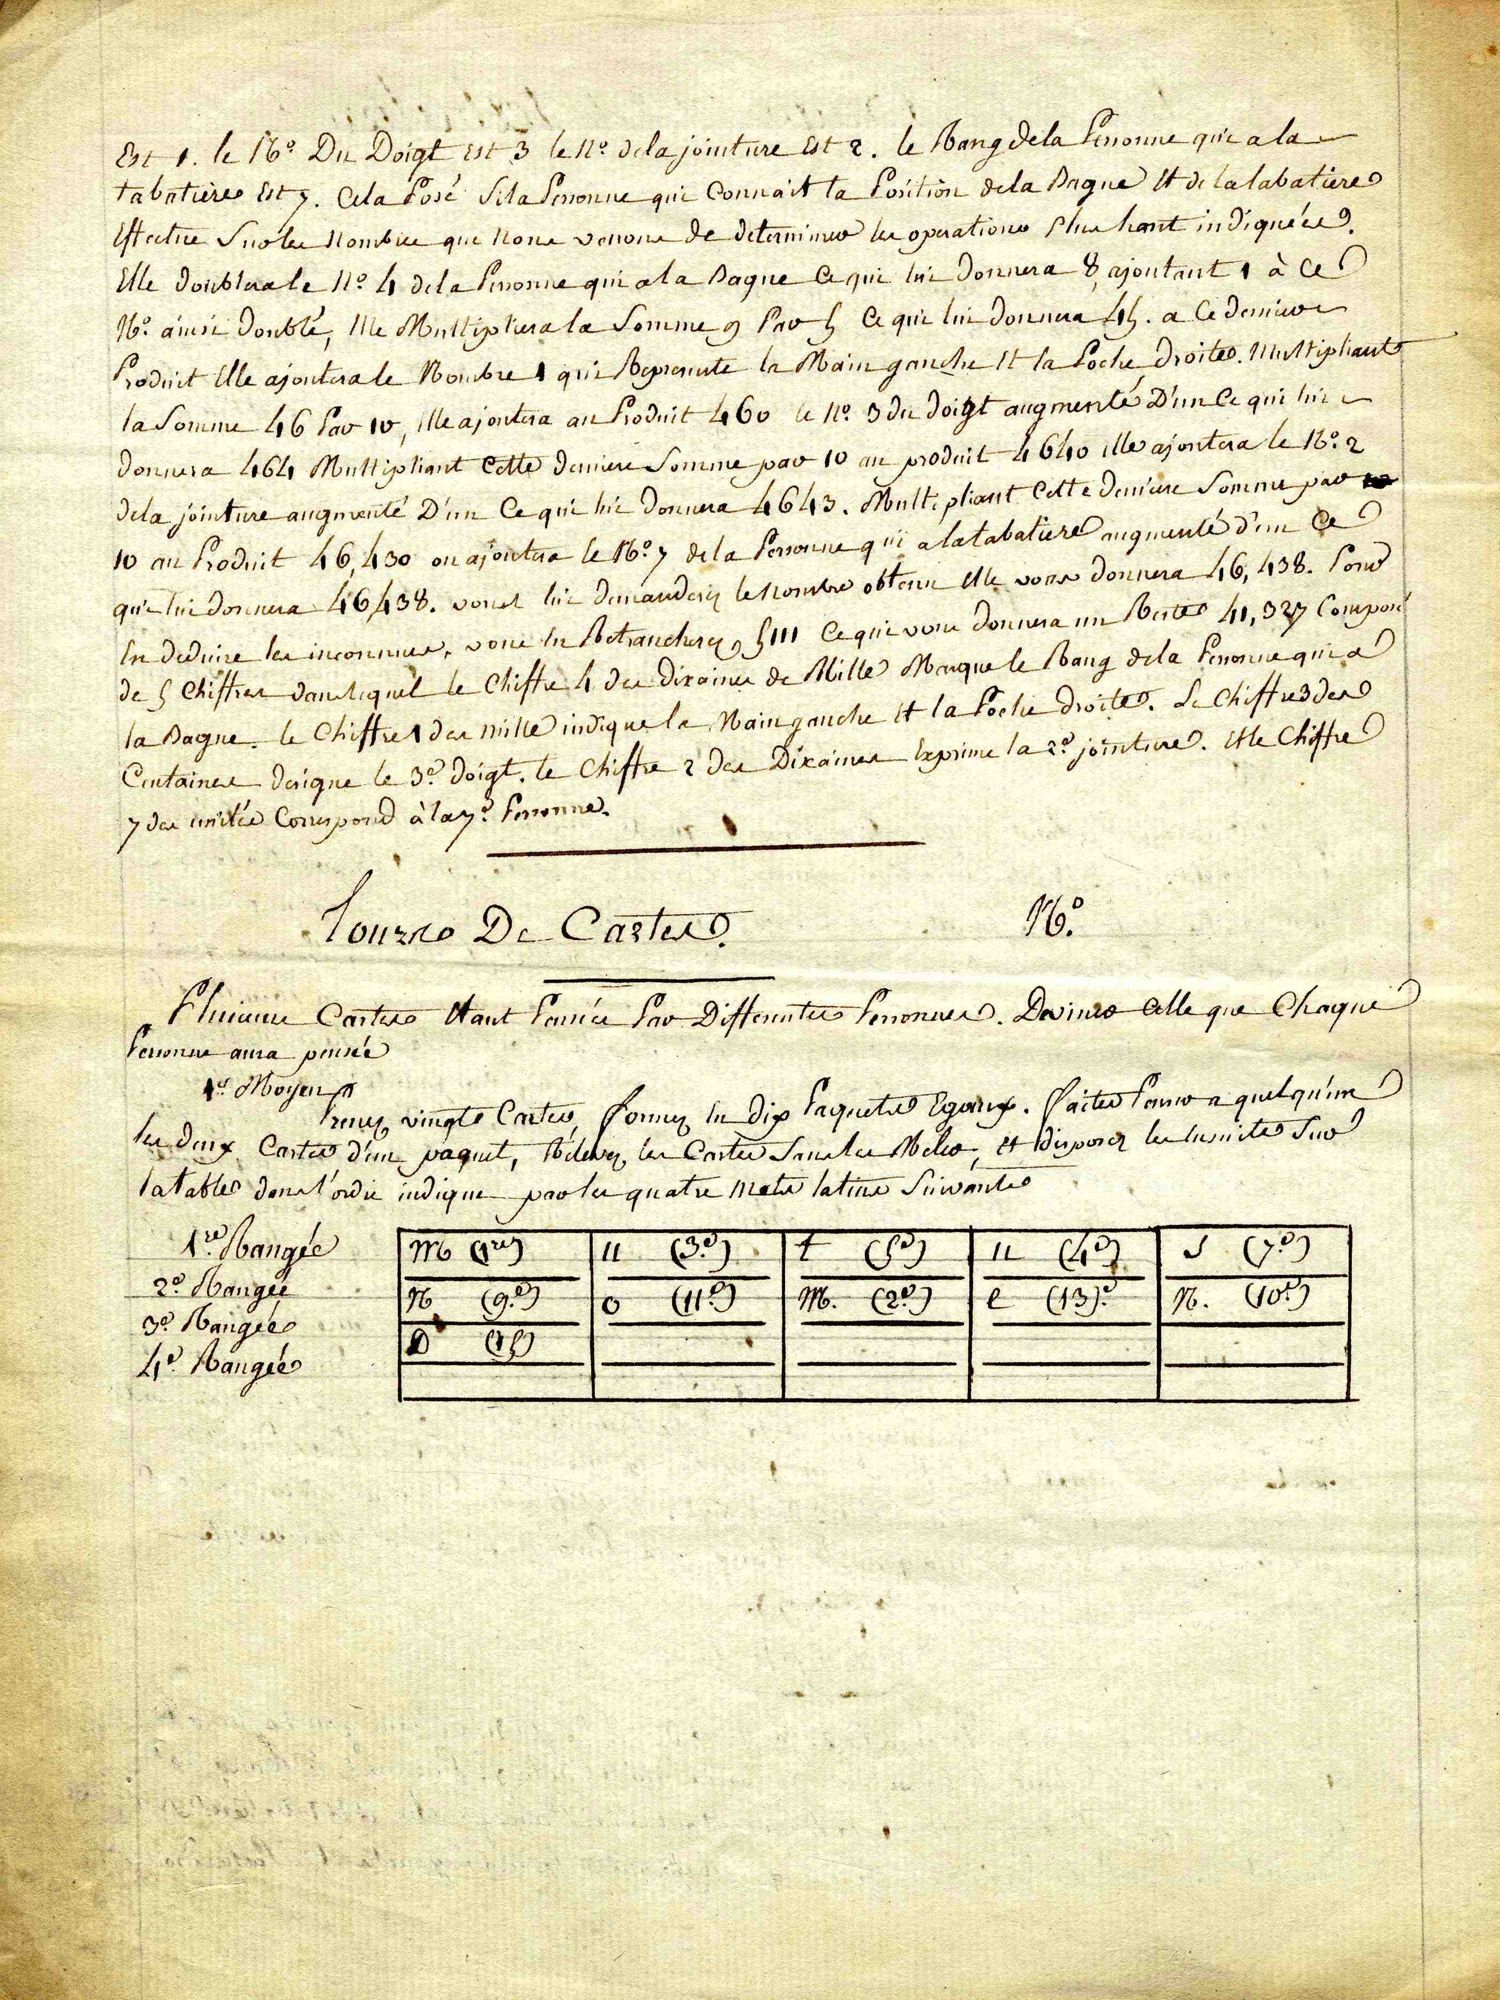 Est 1. le N.º Du Doigt est 3 le n.º dela jointure Est 2. le Rang dela Personne qui a la
tabatiere Est 7. Cela Posé Si la Personne qui Connait la Position dela Bague Et de la tabatiere
Effectue Sur les Nombres que Nous venons de determiner les operations Plus haut indiquées.
Elle doublera le N.º 4 dela Personne qui a la Bague Ce qui lui Donnera 8, ajoutant 1 à Ce
N.º ainsi doublé, Elle Multipliera la Somme 9 Par 5 Ce qui lui donnera 45. a Ce dernier
Produit Elle ajoutera le Nombre 1 qui Represente la Main gauche Et la Poche droite. Multipliant
la Somme 46 Par 10, Elle ajoutera au Produit 460 le N.º 3 du doigt augmenté D'un Ce qui lui
donnera 464 Multipliant Cette derniere Somme par 10 au produit 4640 Elle ajoutera le N.º 2
dela jointure augmenté D'un Ce qui lui donnera 4643. Multipliant Cette derniere Somme par
10 au Produit 46,430 on ajoutera le N.º 7 de la Personne qui a la tabatiere augmenté d'un Ce
qui lui donnera 46,438. vous lui demanderez le nombre obtenu Elle vous donnera 46,438. Pour
En deduire les inconnues, vous En Retrancherez 5111 Ce qui vous donnera un Reste 41,327 Composé
de 5 Chiffres dans lequel le Chiffre 4 des dixaines de Mille Marque le Rang dela Personne qui a
la Bague. le Chiffre 1 des mille indique la Main gauche Et la Poche droite. Le Chiffre 3 des
Centaines designe le 3.e doigt. le Chiffre 2 des Dixaines Exprime la 2.e jointure. Et le Chiffre
7 des unités Correspond à la 7.e Personne.
Tours De Cartes. N.º
Plusieurs Cartes Etant Pensées Par Differentes Personnes. Deviner Celle que Chaque
Personne aura pensée
1.er Moyen
Prenez vingt Cartes, formez En dix Paquets Egaux. faites Penser a quelqu'un
les deux Cartes d'un paquet, Rélevez les Cartes Sans les Mêler, et disposez les Ensuite Sur
la table dans l'ordre indiqué par les quatre Mots latins Suivants
1.re Rangée M (1er) u (3.e) t (5e) u (4e) s (7.e)
2.e Rangée N (9.e) o (11e) M. (2.e) e (13).e N. (10.e)
3.e Rangée D (15)
4.e Rangée